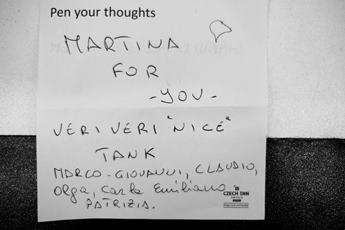 Pen your thoughts
MARTINA
FOR
- YOU -
VERI VERI "NICE"
TANK
MARCO - GIOVANNI, CLAUDIO,
Olga, Carla Emiliano
PATRIZIA.
CZECH INN